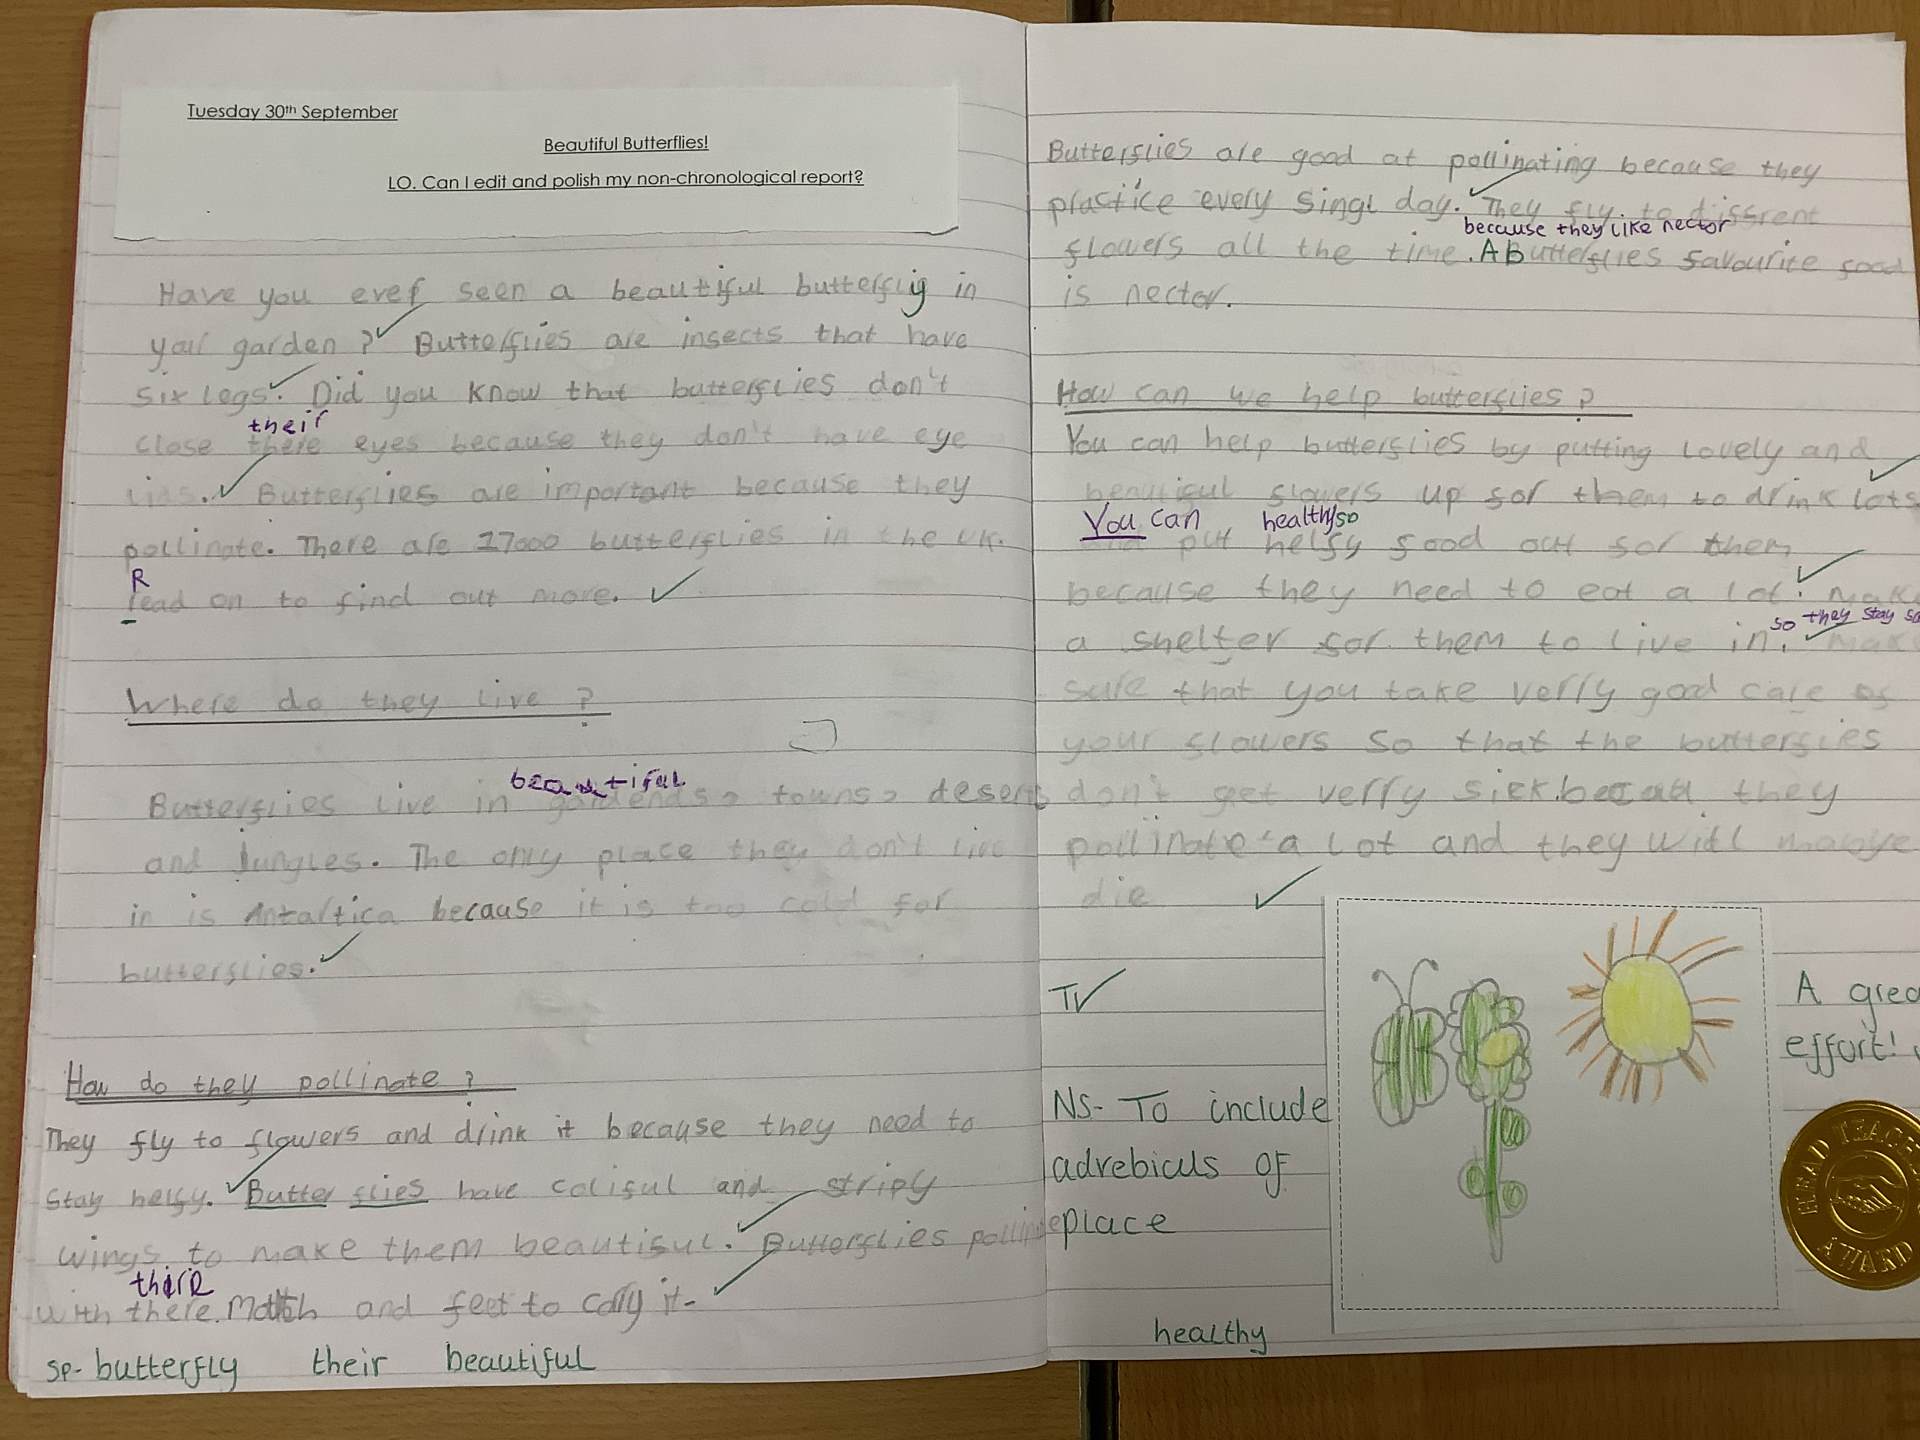 Tuesday 30th September
Beautiful Butterflies!
LO. Can I edit and polish my non-chronological report?
Have you ever seen a beautiful butterfly in
your garden? Butterflies are insects that have
six legs. Did you know that butterflies don't
their
close there eyes because they don't have eye
lids. Butterflies are important because they
pollinate. There are 17000 butterflies in the UK.
R
read on to find out more.
Where do they live?
beautiful
Butterflies live in gardends, towns, deserts
and jungles. The only place they don't live
in is Antartica because it is too cold for
butterflies.
How do they pollinate?
They fly to flowers and drink it because they need to
stay helfy. Butter flies have coliful and stripy
wings to make them beautiful. Butterflies pollinate
their
with there and feet to cary it.
sp- butterfly their beautiful
Butterflies are good at pollinating because they
practice every singl day. They fly to diffrent
because they like nector
flowers all the time. A Butterflies favourite food
is nector.
How can we help butterflies?
You can help butterflies by putting lovely and
beautiful flowers up for them to drink lots
You can healthy so
and put helfy food out for them
because they need to eat a lot. Make
so they stay
a shelter for them to live in. Make
sure that you take verry good care of
your flowers so that the butterfies
don't get verry sick. they
pollinate a lot and they will mabye
die
TV
NS- To include
adrebiculs of
place
A
effort!
HEAD
AWARD
healthy